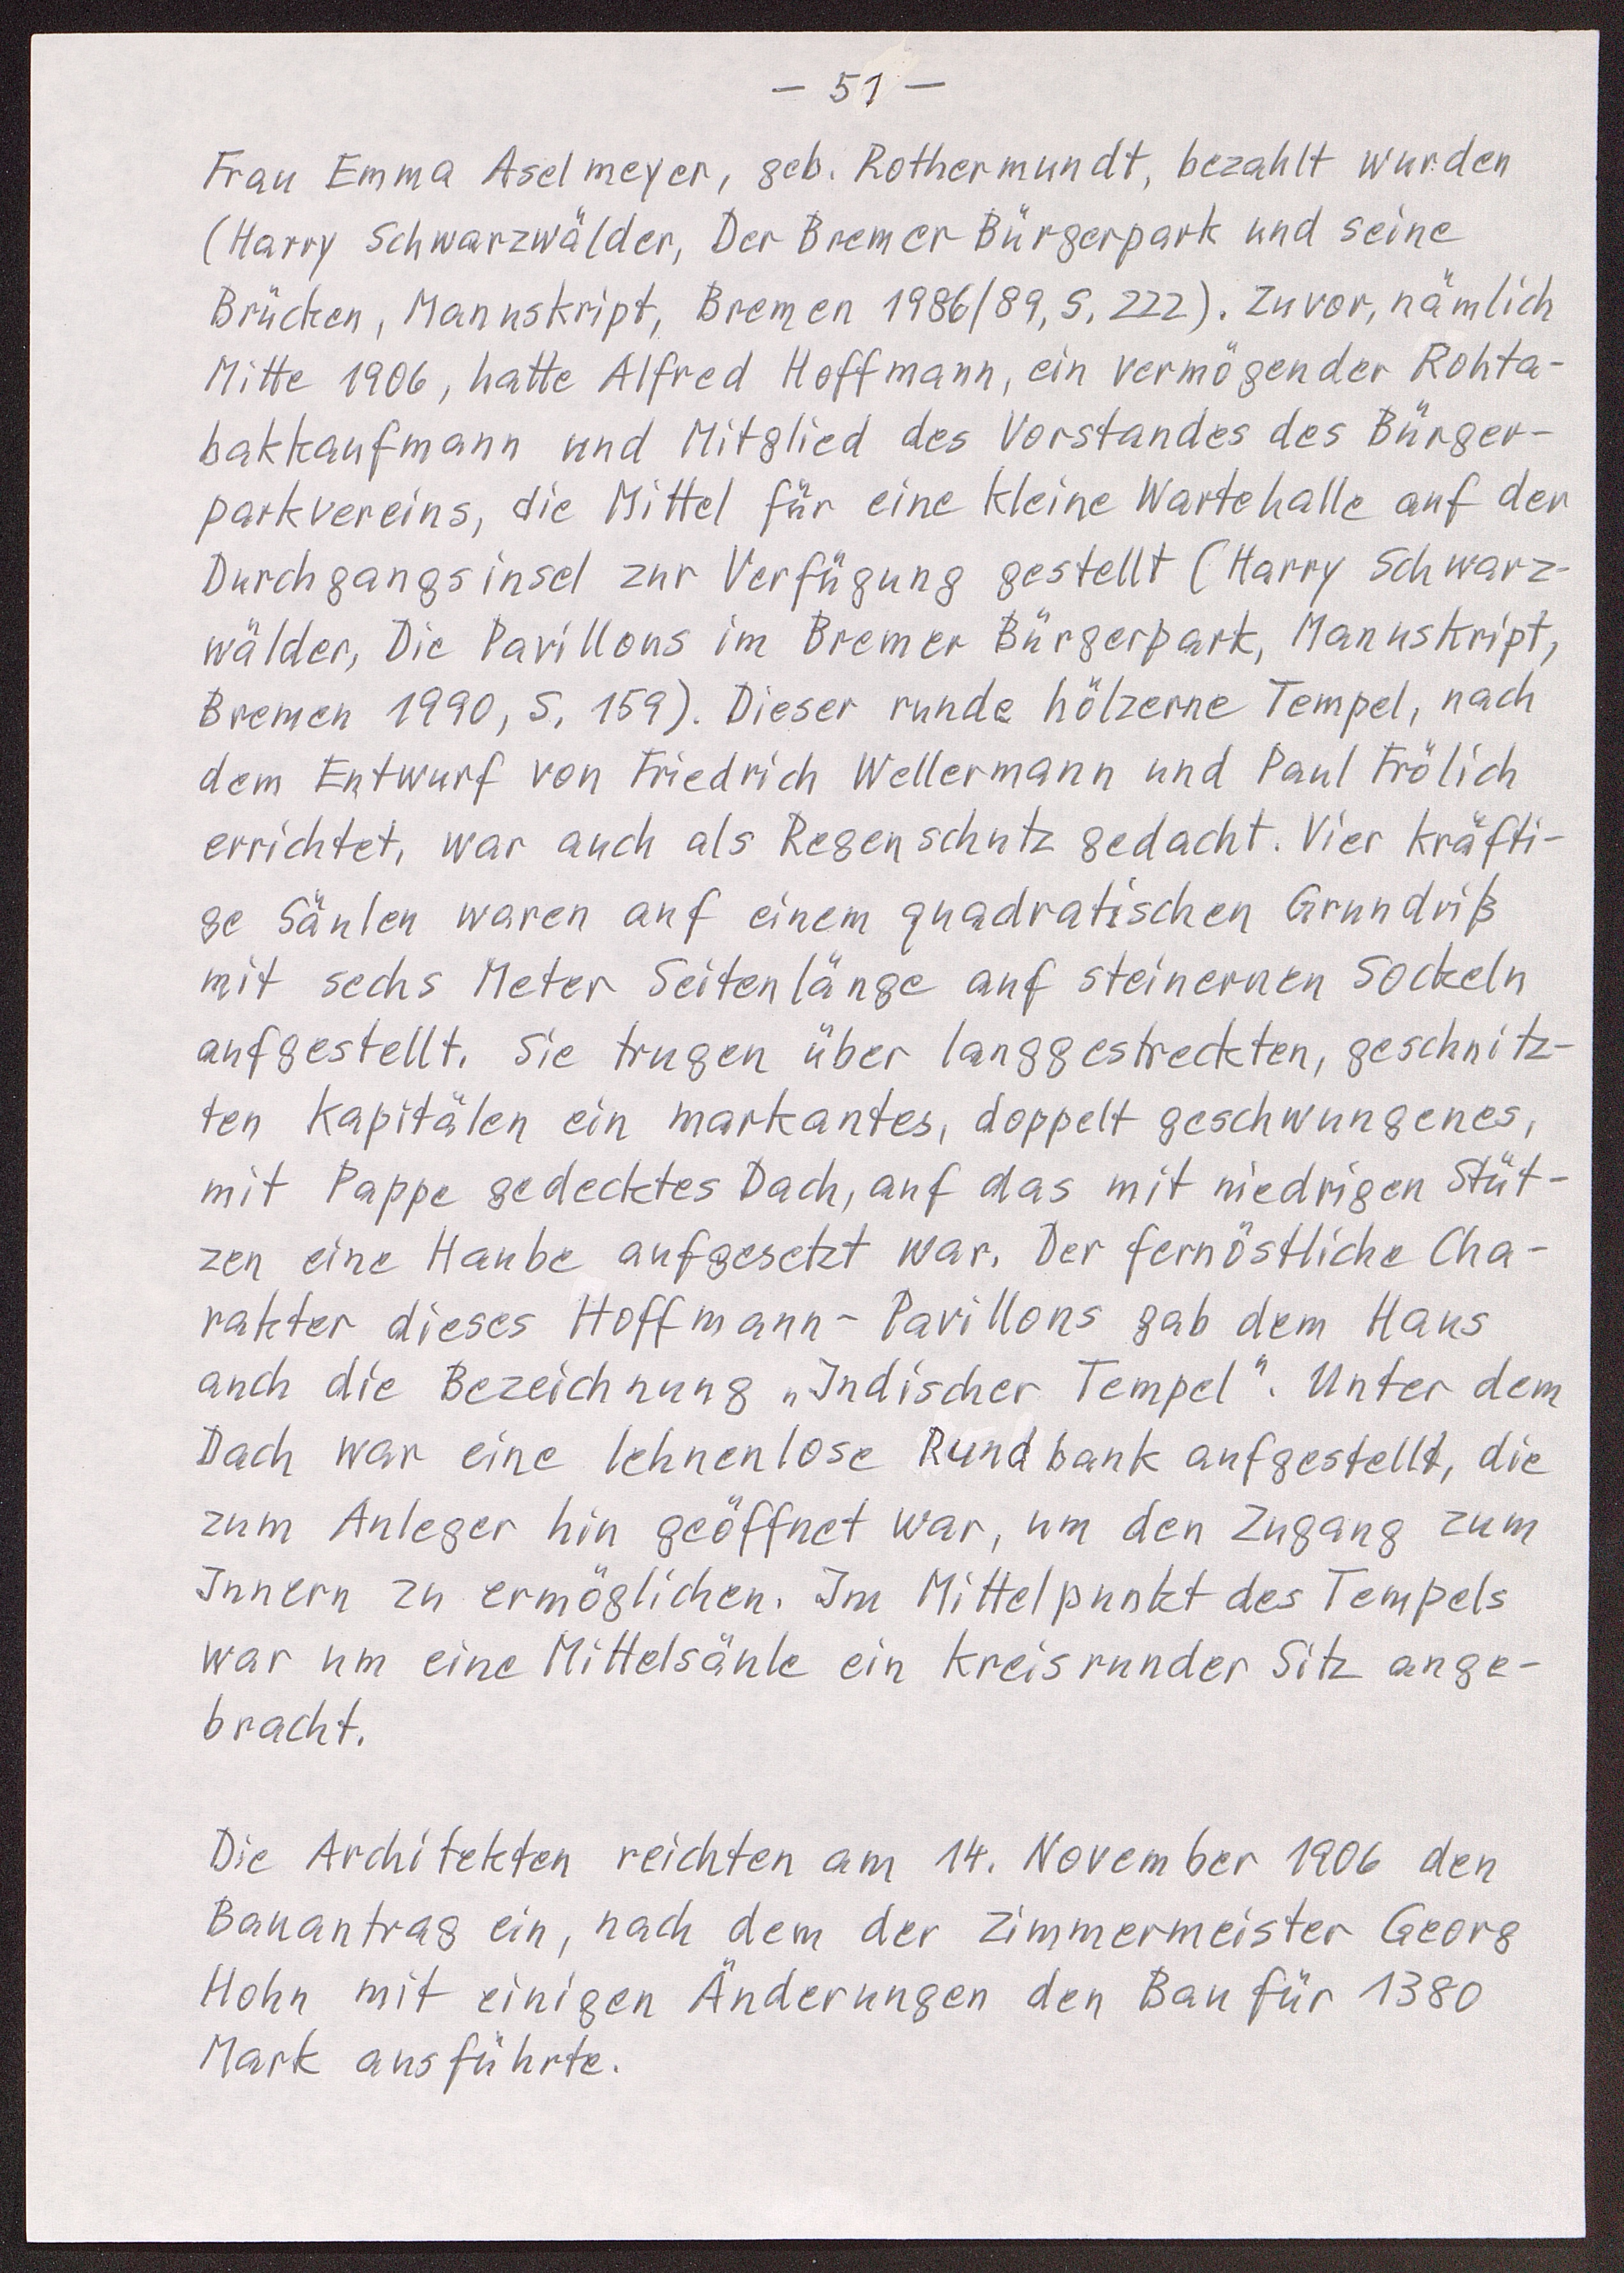 – 51 –
Frau Emma Aselmeyer, geb. Rothermundt, bezahlt wurden
(Harry Schwarzwälder, Der Bremer Bürgerpark und seine
Brücken, Manuskript, Bremen 1986/89, S. 222). Zuvor, nämlich
Mitte 1906, hatte Alfred Hoffmann, ein vermögender Rohta-
bakkaufmann und Mitglied des Vorstandes des Bürger-
parkvereins, die Mittel für eine kleine Wartehalle auf der
Durchgangsinsel zur Verfügung gestellt (Harry Schwarz-
wälder, Die Pavillons im Bremer Bürgerpark, Manuskript,
Bremen 1990, S. 159). Dieser runde hölzerne Tempel, nach
dem Entwurf von Friedrich Wellermann und Paul Frölich
errichtet, war auch als Regenschutz gedacht. Vier kräfti-
ge Säulen waren auf einem quadratischen Grundriß
mit sechs Meter Seitenlänge auf steinernen Sockeln
aufgestellt. Sie trugen über langgestreckten, geschnitz-
ten Kapitälen ein markantes, doppelt geschwungenes,
mit Pappe gedecktes Dach, auf das mit niedrigen Stüt-
zen eine Haube aufgesetzt war. Der fernöstliche Cha-
rakter dieses Hoffmann-Pavillons gab dem Haus
auch die Bezeichnung „Indischer Tempel“. Unter dem
Dach war eine lehnenlose Rundbank aufgestellt, die
zum Anleger hin geöffnet war, um den Zugang zum
Innern zu ermöglichen. Im Mittelpunkt des Tempels
war um eine Mittelsäule ein kreisrunder Sitz ange-
bracht.
Die Architekten reichten am 14. November 1906 den
Bauantrag ein, nach dem der Zimmermeister Georg
Hohn mit einigen Änderungen den Bau für 1380
Mark ausführte.